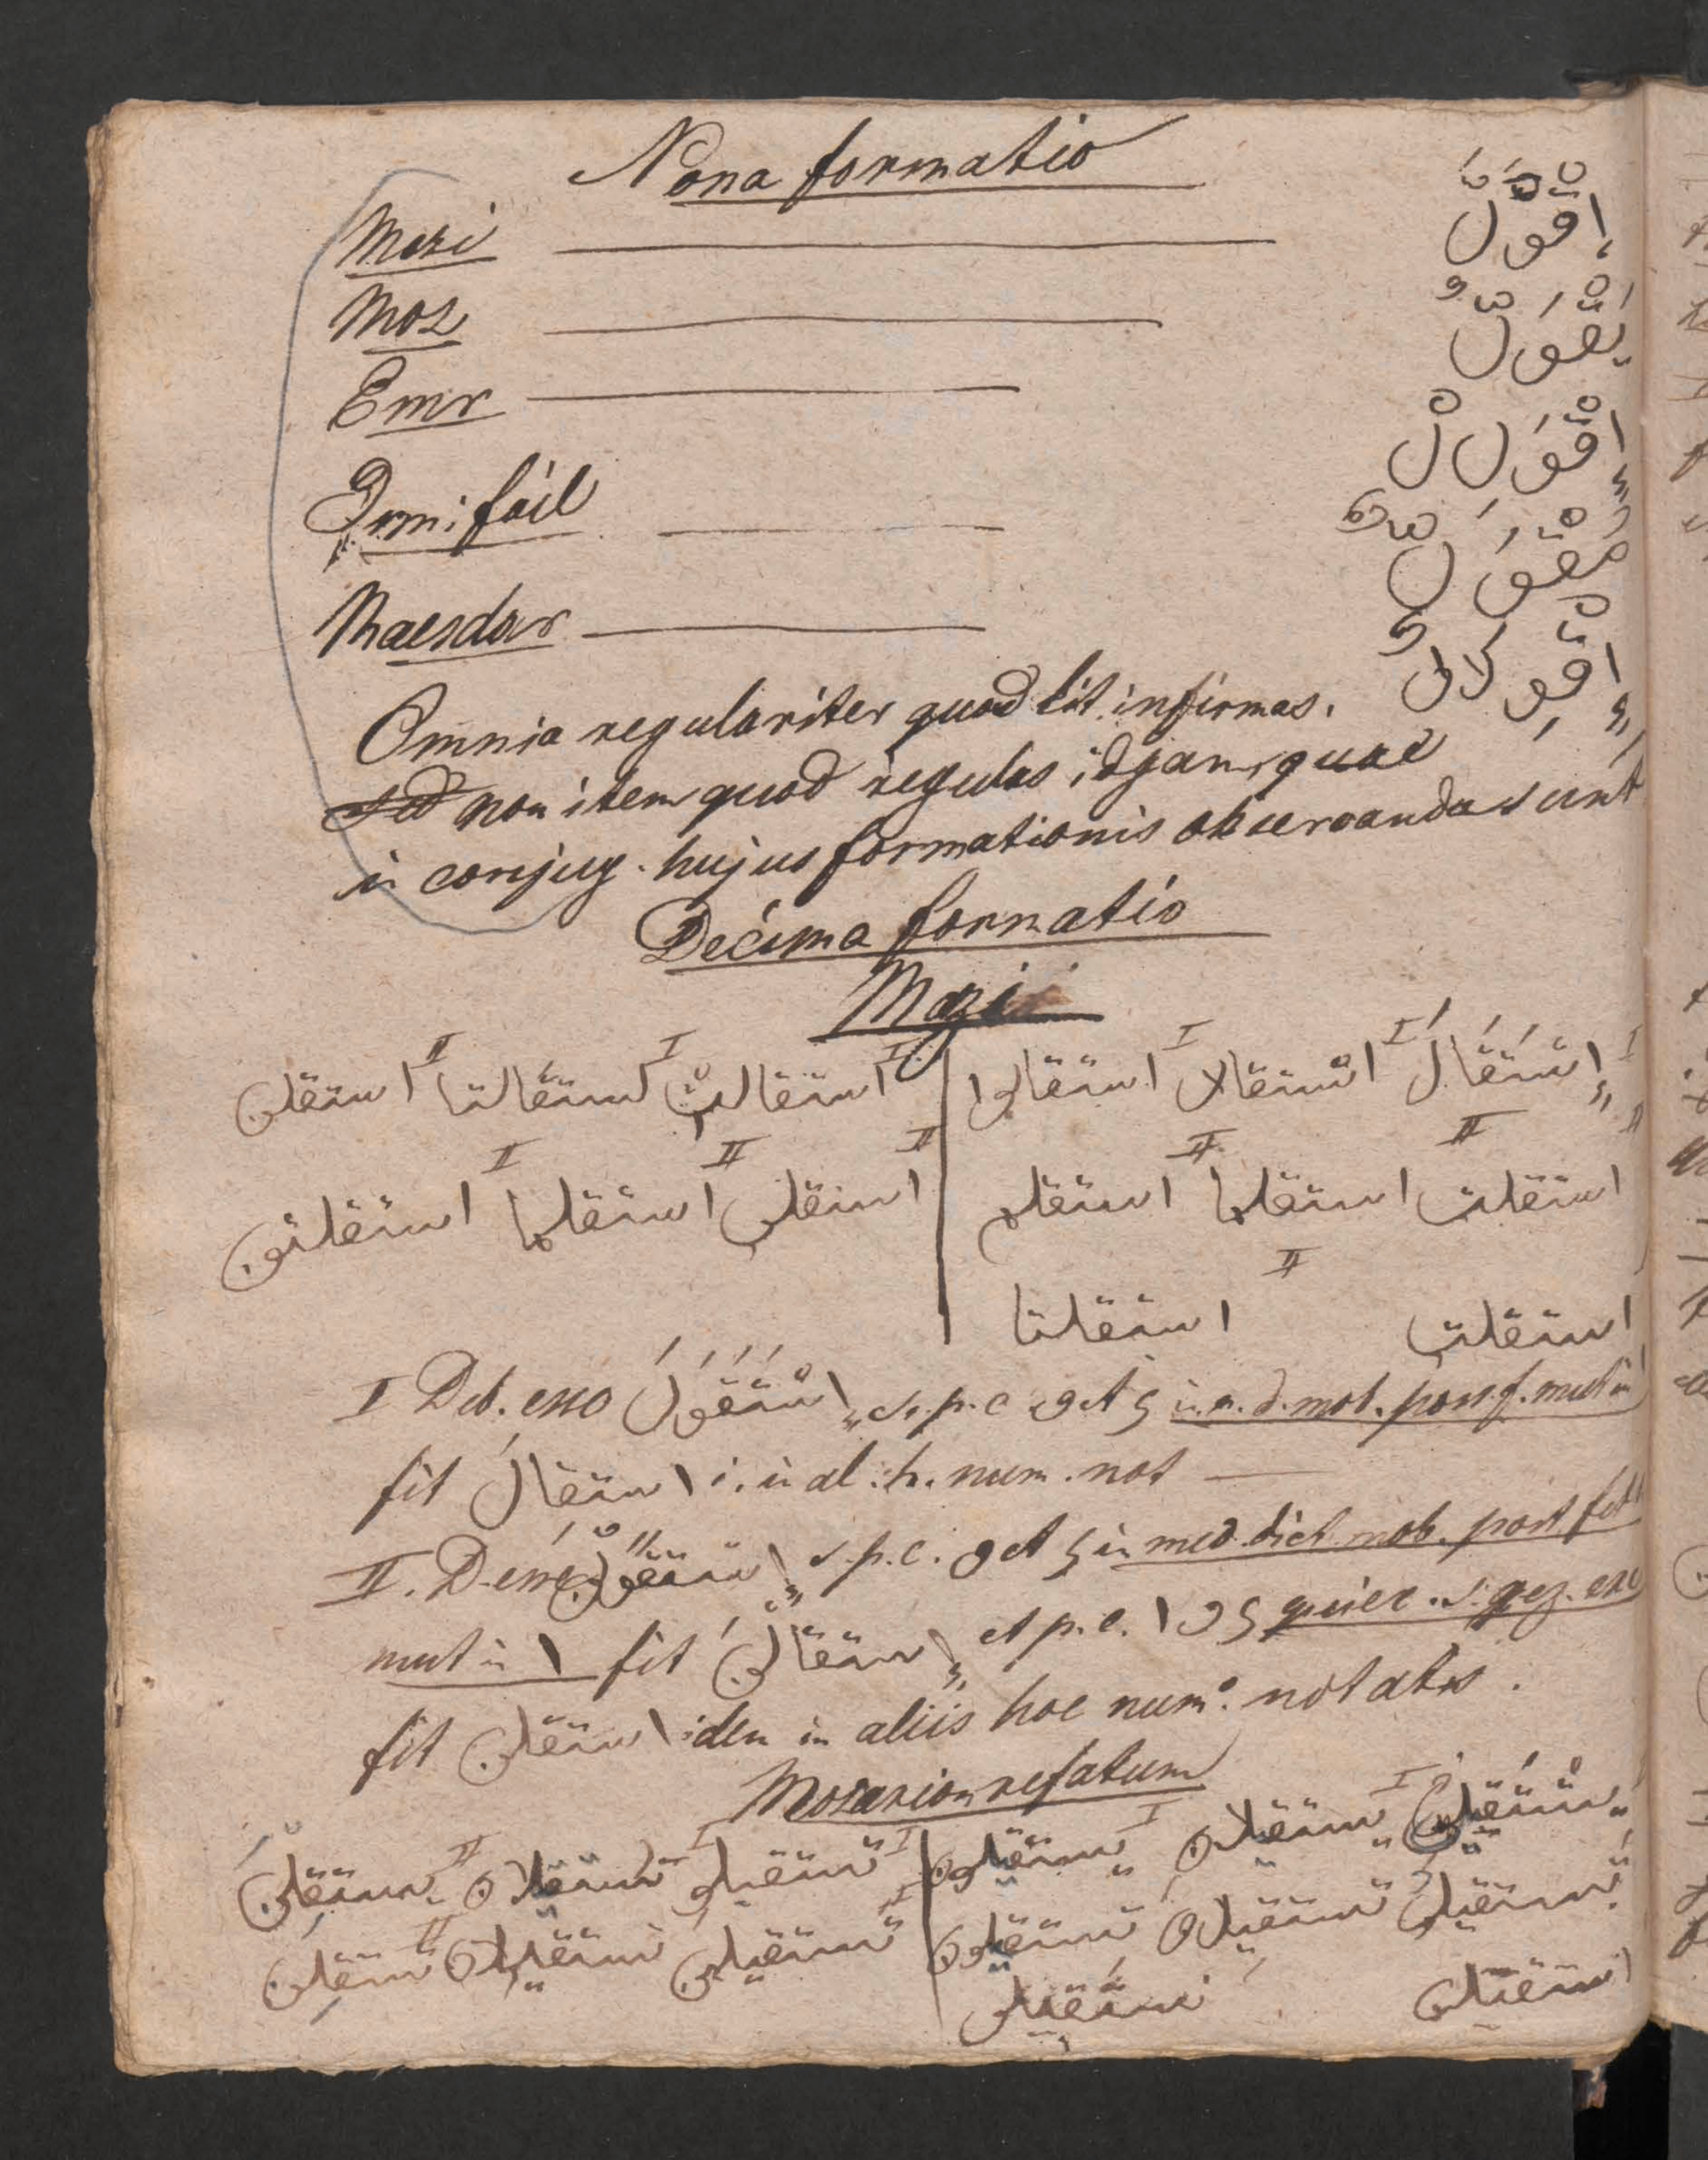 Nona formatio
Mazi إِقْوَلَّ
Moz يَقْوَلُّ
Emr إِقْوَلِلْ
Ismi fáil مُقْوَلٌّ
Maesdar إِقْوِلَالٌ
Omnia regulariter quod lit. infirmas.
non item quod regulas idgam, quae
in conjug. hujus formationis observandae sunt
Decima formatio
Mazi
I إِسْتَقَالَ I استقالا I استقالوا I استقالتْ I استقالتا II استقلن
II استقلت II استقلتما II استقلتم II استقلت II استقلتما II استقلتن
استقلت II استقلنا
I Deb. esse إِسْتَقْوَلَ s.p.c. و et ي in m. d. mob. post f. mut in
fit استقالَ i. in al. h. num. not
II. D. esse إِستقولن s.p.c. و et ي in med. dict. mob. post fet
mut in ا fit إِستقالن et p.c. ا و ي quiec. s. gez. exc
fit استقلن idem in aliis hoc num.º notatis.
Mozarion refatum
يَسْتَقِيلُ I يستقيلان I يستقيلون I تستقيل I تستقيلان II يستقلن
تستقيل تستقيلان تستقيلون I تستقيلين تستقيلان II تستقلن
استقيل نستقيل